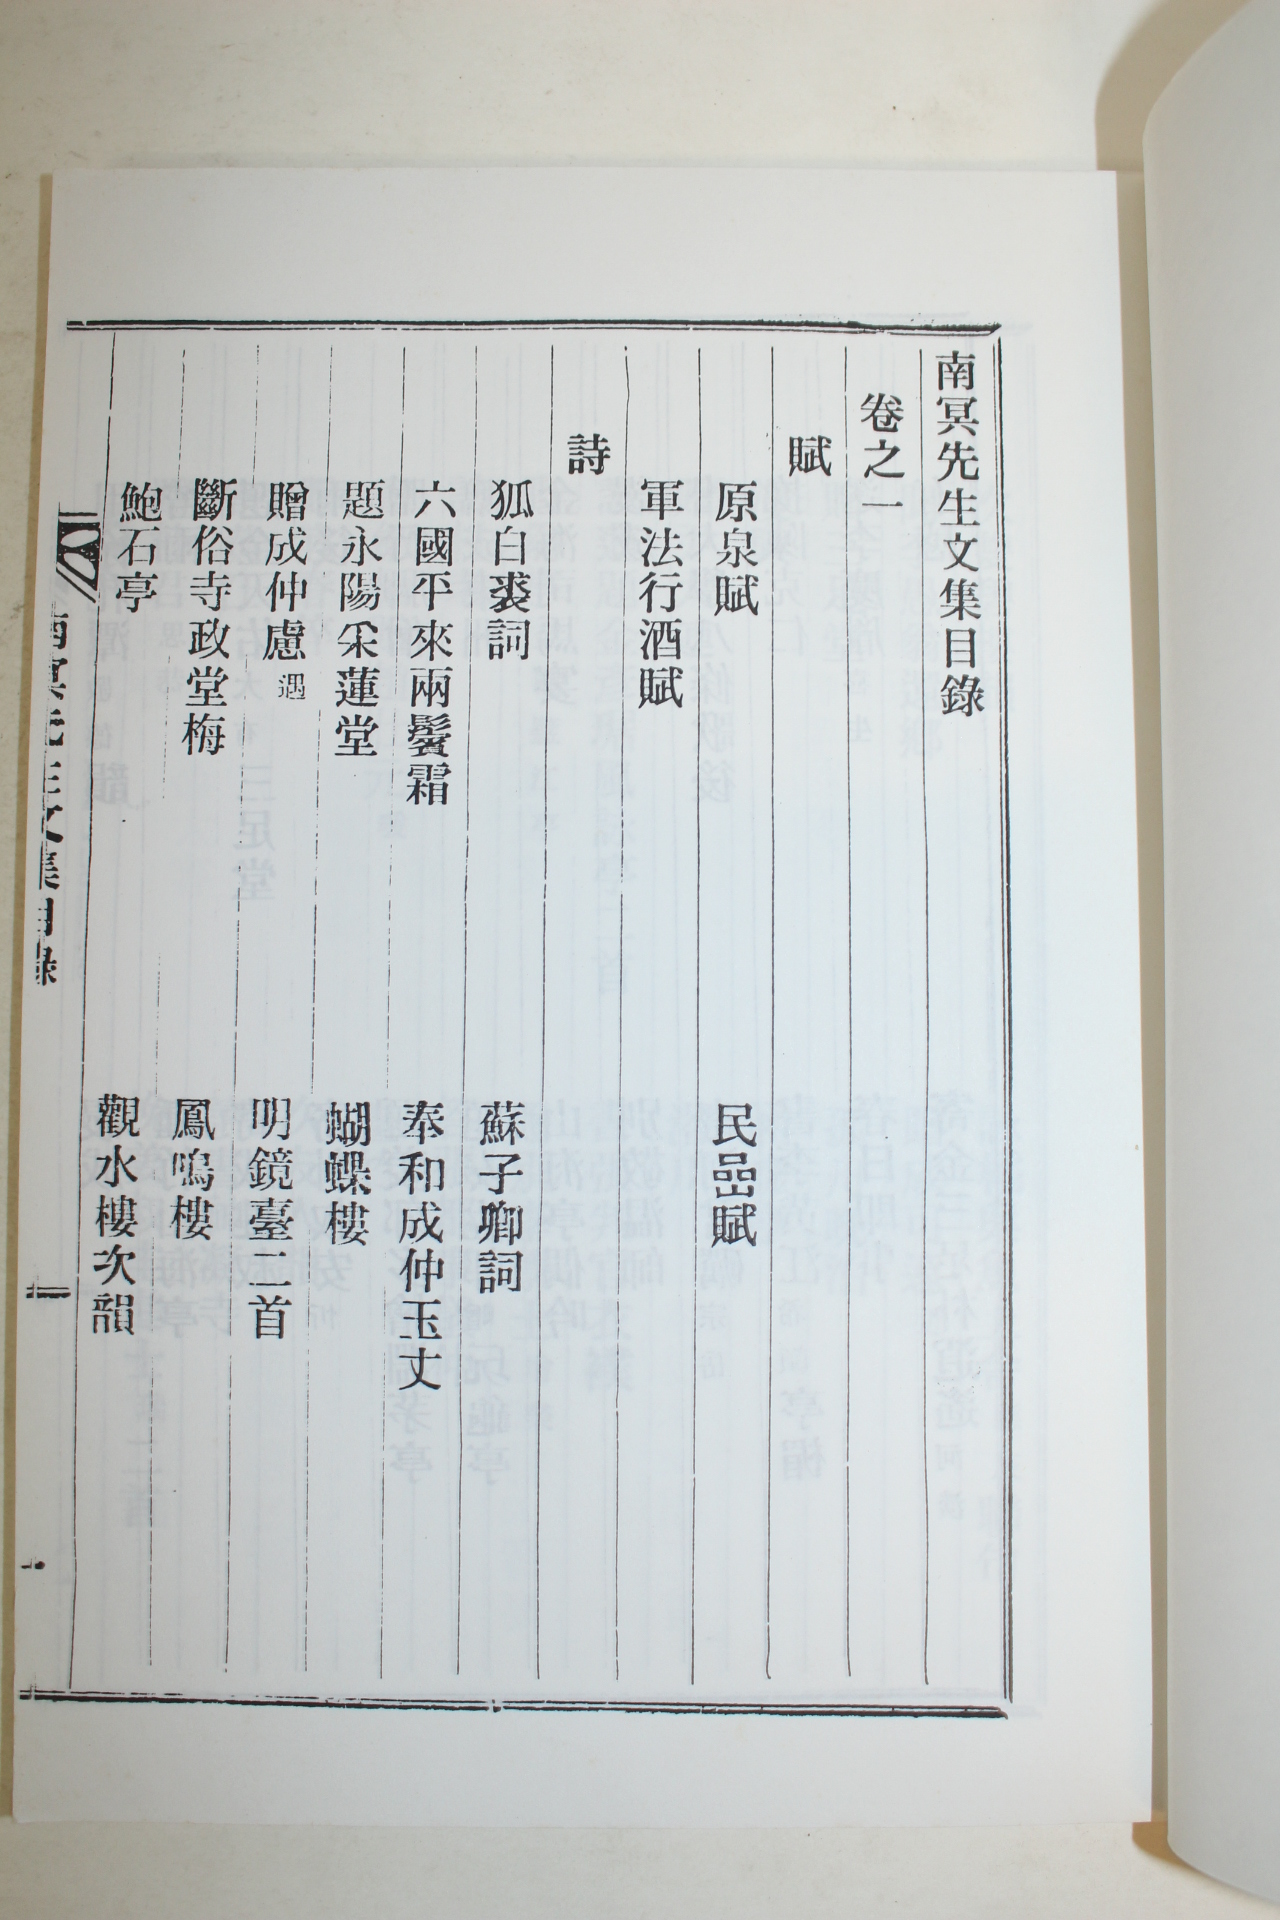 南冥先生文集目錄
卷之一
賦
原泉賦
民嵒賦
軍法行酒賦
詩
狐白裘詞
蘇子卿詞
六國平來兩鬢霜
奉和成仲玉丈
題永陽采蓮堂
蝴蝶樓
贈成仲慮遇
明鏡臺二首
斷俗寺政堂梅
鳳鳴樓
鮑石亭
觀水樓次韻
南冥先生文集目錄